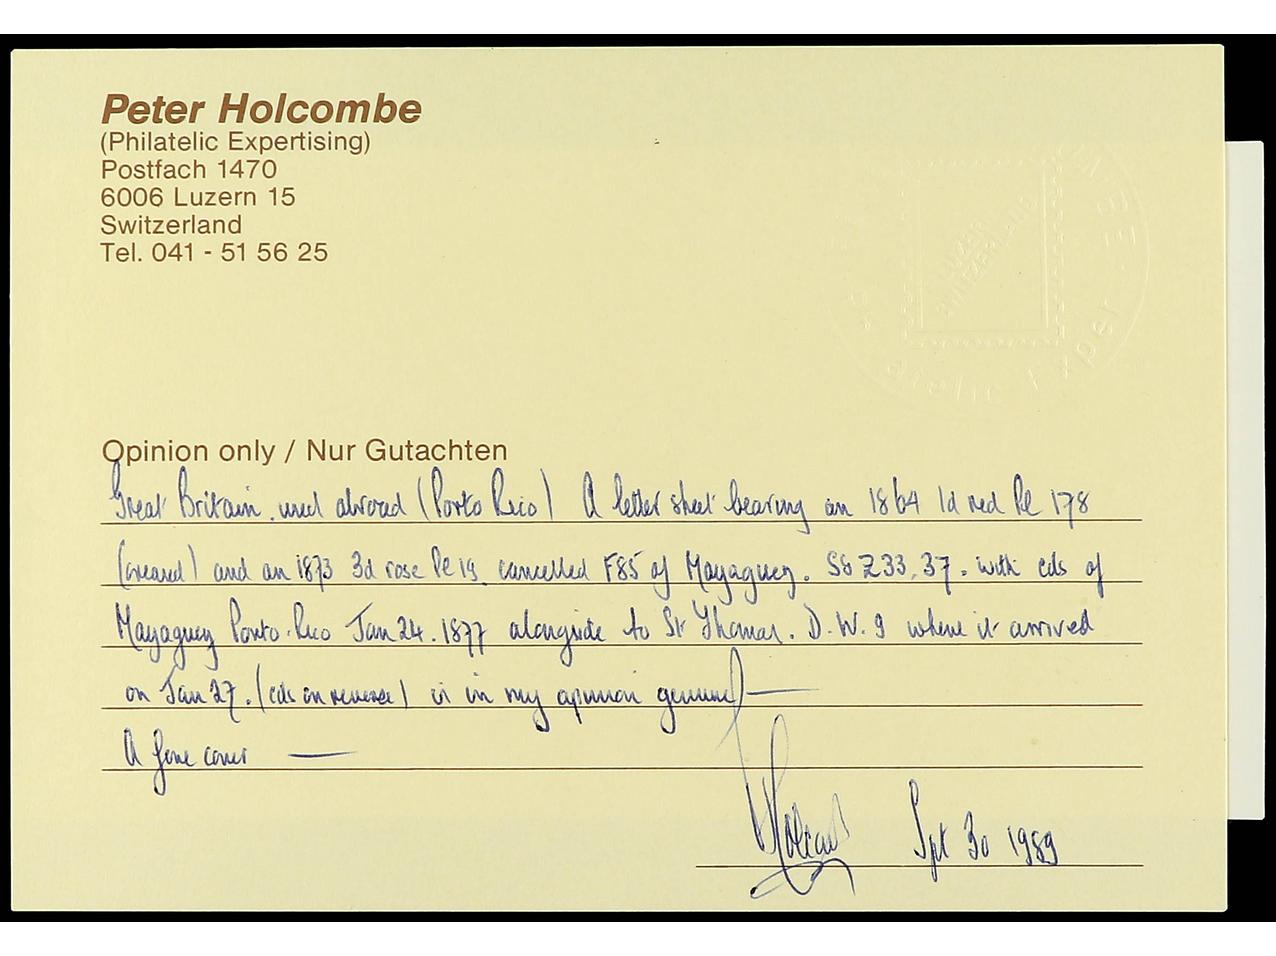 Peter Holcombe
(Philatelic Expertising)
Postfach 1470
6006 Luzern 15
Switzerland
Tel. 041 - 51 56 25
LUZERN
SWITZERLAND
Opinion only / Nur Gutachten
Great Britain. used abroad (Porto Rico) A letter sheet bearing an 1864 1d red Pl 178
(creased) and an 1873 3d rose Pl 19 cancelled F85 of Mayaguez. SG Z33, 37. with cds of
Mayaguez Porto-Rico Jan 24. 1877 alongside to St Thomas. D.W.I where it arrived
on Jan 27. (cds on reverse) is in my opinion genuine
A fine cover
Holcombe Sept 30 1989